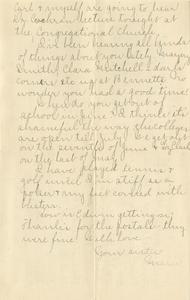 Carl & myself are going to hear
lecture tonight at
the Congregational Church.
I've been hearing all kinds
of things about you lately
Clara Mitchell
me up at Bennetts no
wonder you had a good time.
When do you get out of
school in June? I think its
shameful the way the colleges
are open till July. I
on the seventh of June &
on the last of May.
I have played tennis &
golf until I'm stiff as a
poker & my feet covered with
blisters.
How is Edwin getting on?
Thanks for the postals they
were fine. With love
Your sister